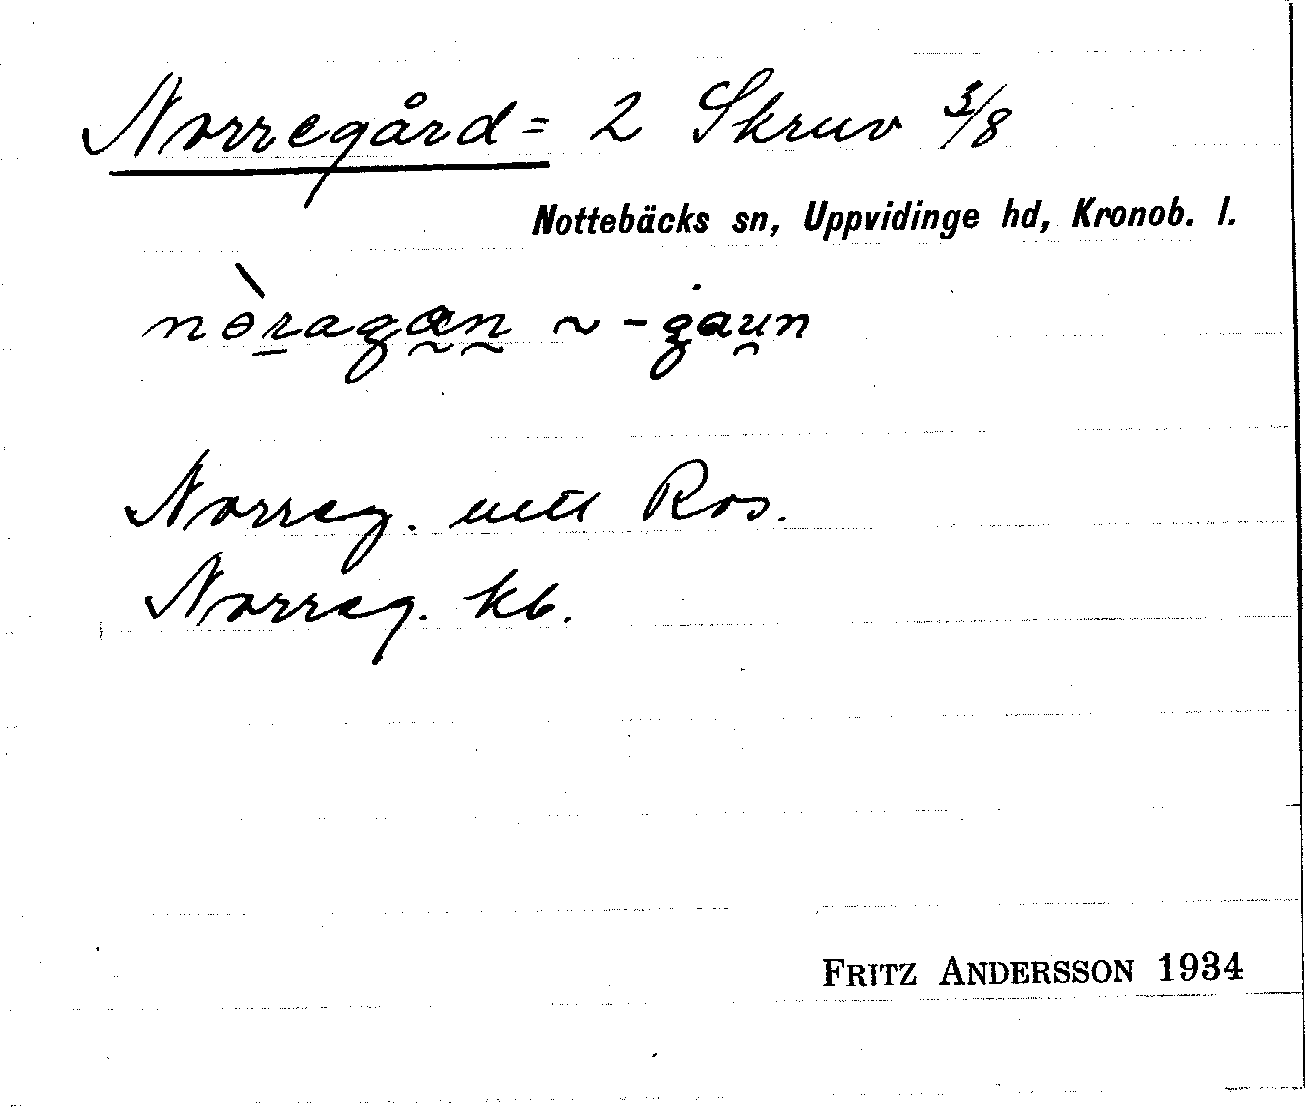 Norregård = 2 Skruv 3/8
Nottebäcks sn, Uppvidinge hd, Kronob. l.
nɵ̀ragan ~ -gau̯n
Norreg. utt Ros.
Norreg. kb.
FRITZ ANDERSSON 1934